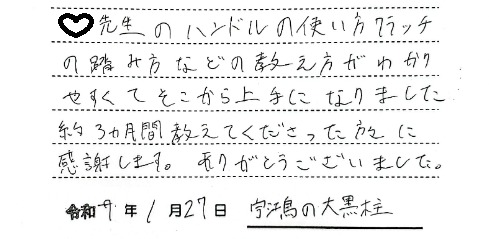 ♡先生のハンドルの使い方クラッチ
の踏み方などの教え方がわかり
やすくてそこから上手になりました
約3ヵ月間教えてくださった方に
感謝します。ありがとうございました。
令和7年1月27日 の大黒柱